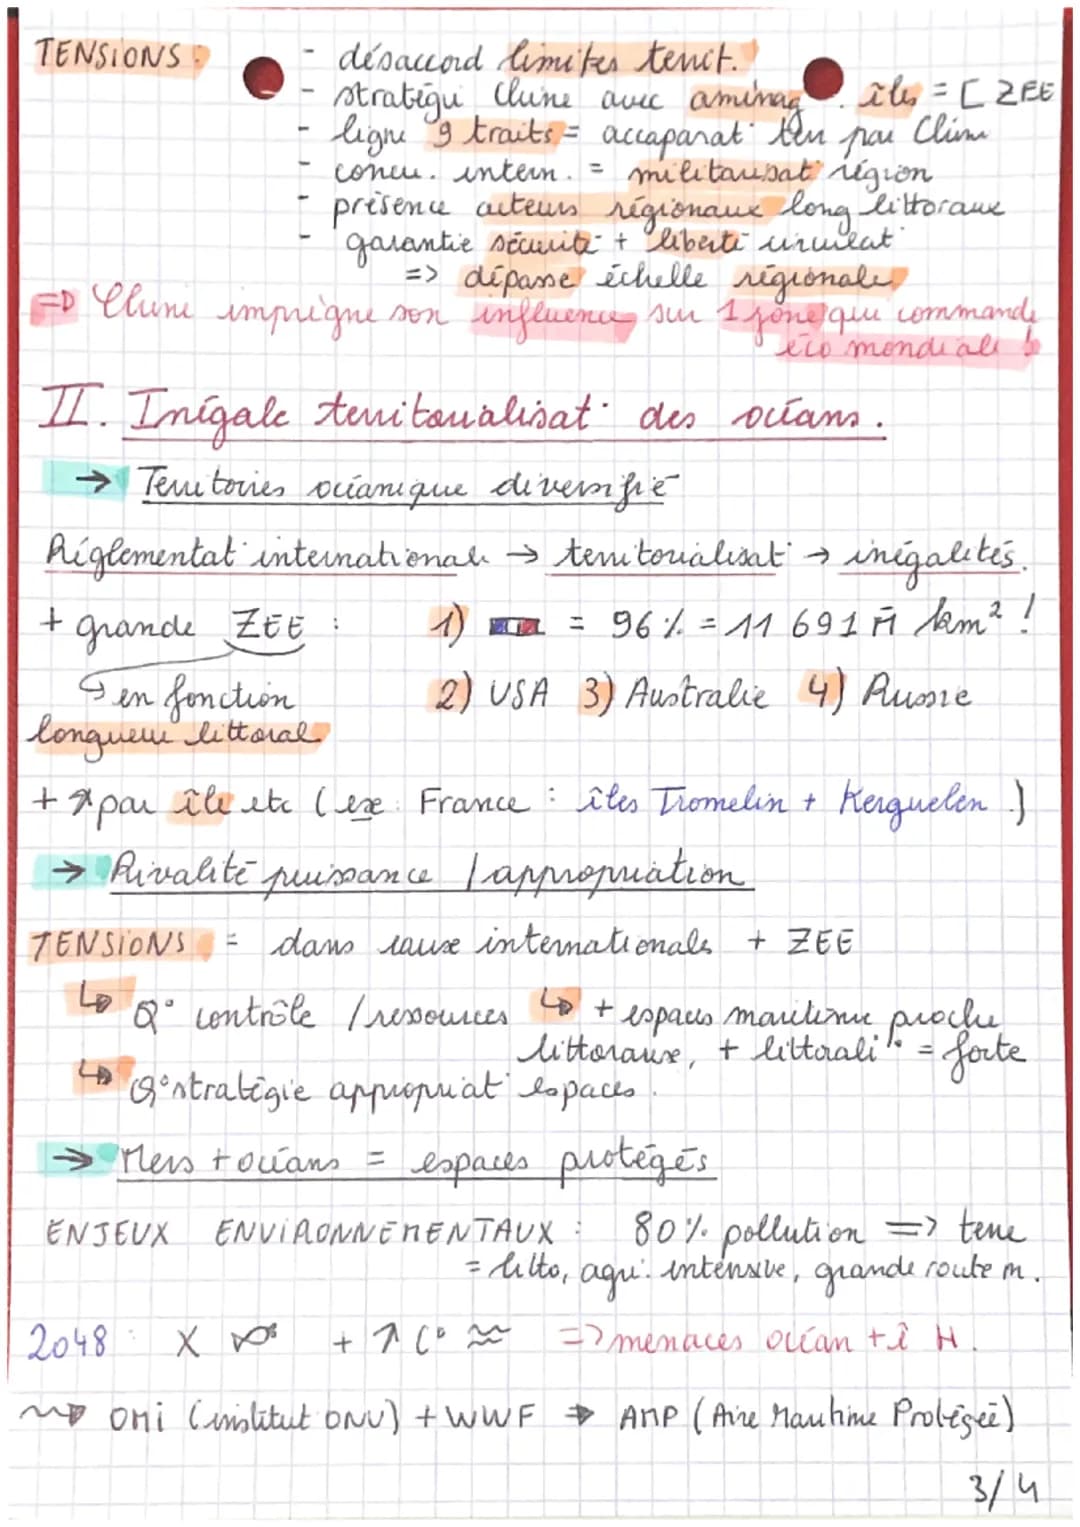 TENSIONS :
- désaccord limites territ.
- stratégie Chine avec aménag. îles = [ ZEE
- ligne 9 traits = accaparat° terr par Chine
- concu. intern. = militarisat° région
- présence acteurs régionaux long littoraux
- garantie sécurité + liberté circulat°
=> dépasse échelle régionale
=> Chine imprègne son influence sur 1 zone que commande
éco mondiale !
II. Inégale territorialisat° des océans.
→ Territoires océanique diversifié
Réglementat° internationale → territorialisat° → inégalités.
+ grande ZEE : 1) = 96% = 11 691 M km² !
↳ en fonction 2) USA 3) Australie 4) Russie
longueur littoral
+ ↗ par île etc (ex : France : îles Tromelin + Kerguelen.)
→ Rivalité puissance / appropriation
TENSIONS = dans eaux internationales + ZEE
↳ Q° contrôle / ressources ↳ + espaces maritime proche
littoraux, + littorali° = forte
↳ Q° stratégie appropriat° espaces.
→ Mers + océans = espaces protégés
ENJEUX ENVIRONNEMENTAUX : 80% pollution => terre
= litto, agri. intensive, grande route m.
2048 : X + ↑ C° ≈ => menaces océan + ê H.
⇝ OMI (institut ONU) + WWF → AMP (Aire Maritime Protégée)
3/4